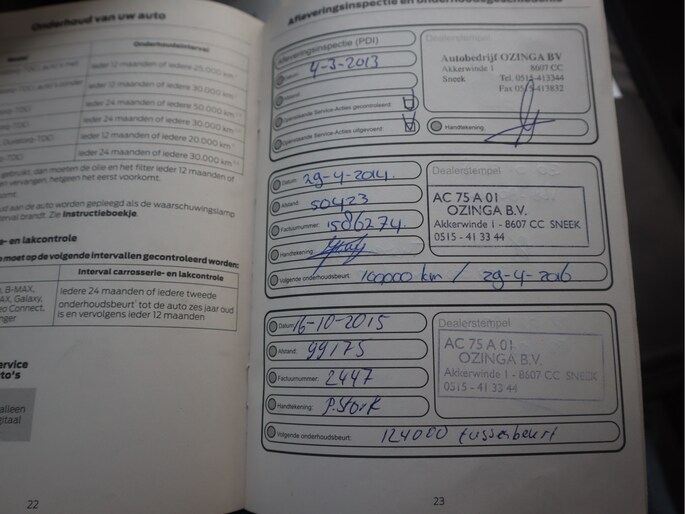 Onderhoud van uw auto
Onderhoudsinterval
Ieder 12 maanden of iedere 25.000 km
Ieder 12 maanden of iedere 30.000 km
Ieder 24 maanden of iedere 50.000 km
Ieder 24 maanden of iedere 30.000 km
Ieder 12 maanden of iedere 20.000 km
Ieder 24 maanden of iedere 30.000 km
gebruikt, dan moeten de olie en het filter ieder 12 maanden of
en vervangen, hetgeen het eerst voorkomt.
komt.
van de auto worden gepleegd als de waarschuwingslamp
erval brandt. Zie Instructieboekje.
e- en lakcontrole
moet op de volgende intervallen gecontroleerd worden:
Interval carrosserie- en lakcontrole
B-MAX,
AX, Galaxy,
no Connect,
Iedere 24 maanden of iedere tweede
onderhoudsbeurt tot de auto zes jaar oud
is en vervolgens ieder 12 maanden
ervice
to's
alleen
gitaal
22
Afleveringsinspectie en onderhoudsgeschiedenis
Afleveringsinspectie (PDI)
4-3-2013
Openstaande Service-Acties gecontroleerd
Openstaande Service-Acties uitgevoerd
Dealerstempel
Autobedrijf OZINGA BV
Akkerwinde 1 8607 CC
Sneek Tel. 0515-413344
Fax 0515-413832
Handtekening:
Datum: 29-4-2014
Afstand: 50423
Factuurnummer: 1586274
Handtekening:
Dealerstempel
AC 75 A 01
OZINGA B.V.
Akkerwinde 1 - 8607 CC SNEEK
0515 - 41 33 44
Volgende onderhoudsbeurt: 100000 km / 29-4-2016
Datum: 16-10-2015
Afstand: 99175
Factuurnummer: 2447
Handtekening: P. Stork
Dealerstempel
AC 75 A 01
OZINGA B.V.
Akkerwinde 1 - 8607 CC SNEEK
0515 - 41 33 44
Volgende onderhoudsbeurt: 124000 tussenbeurt
23